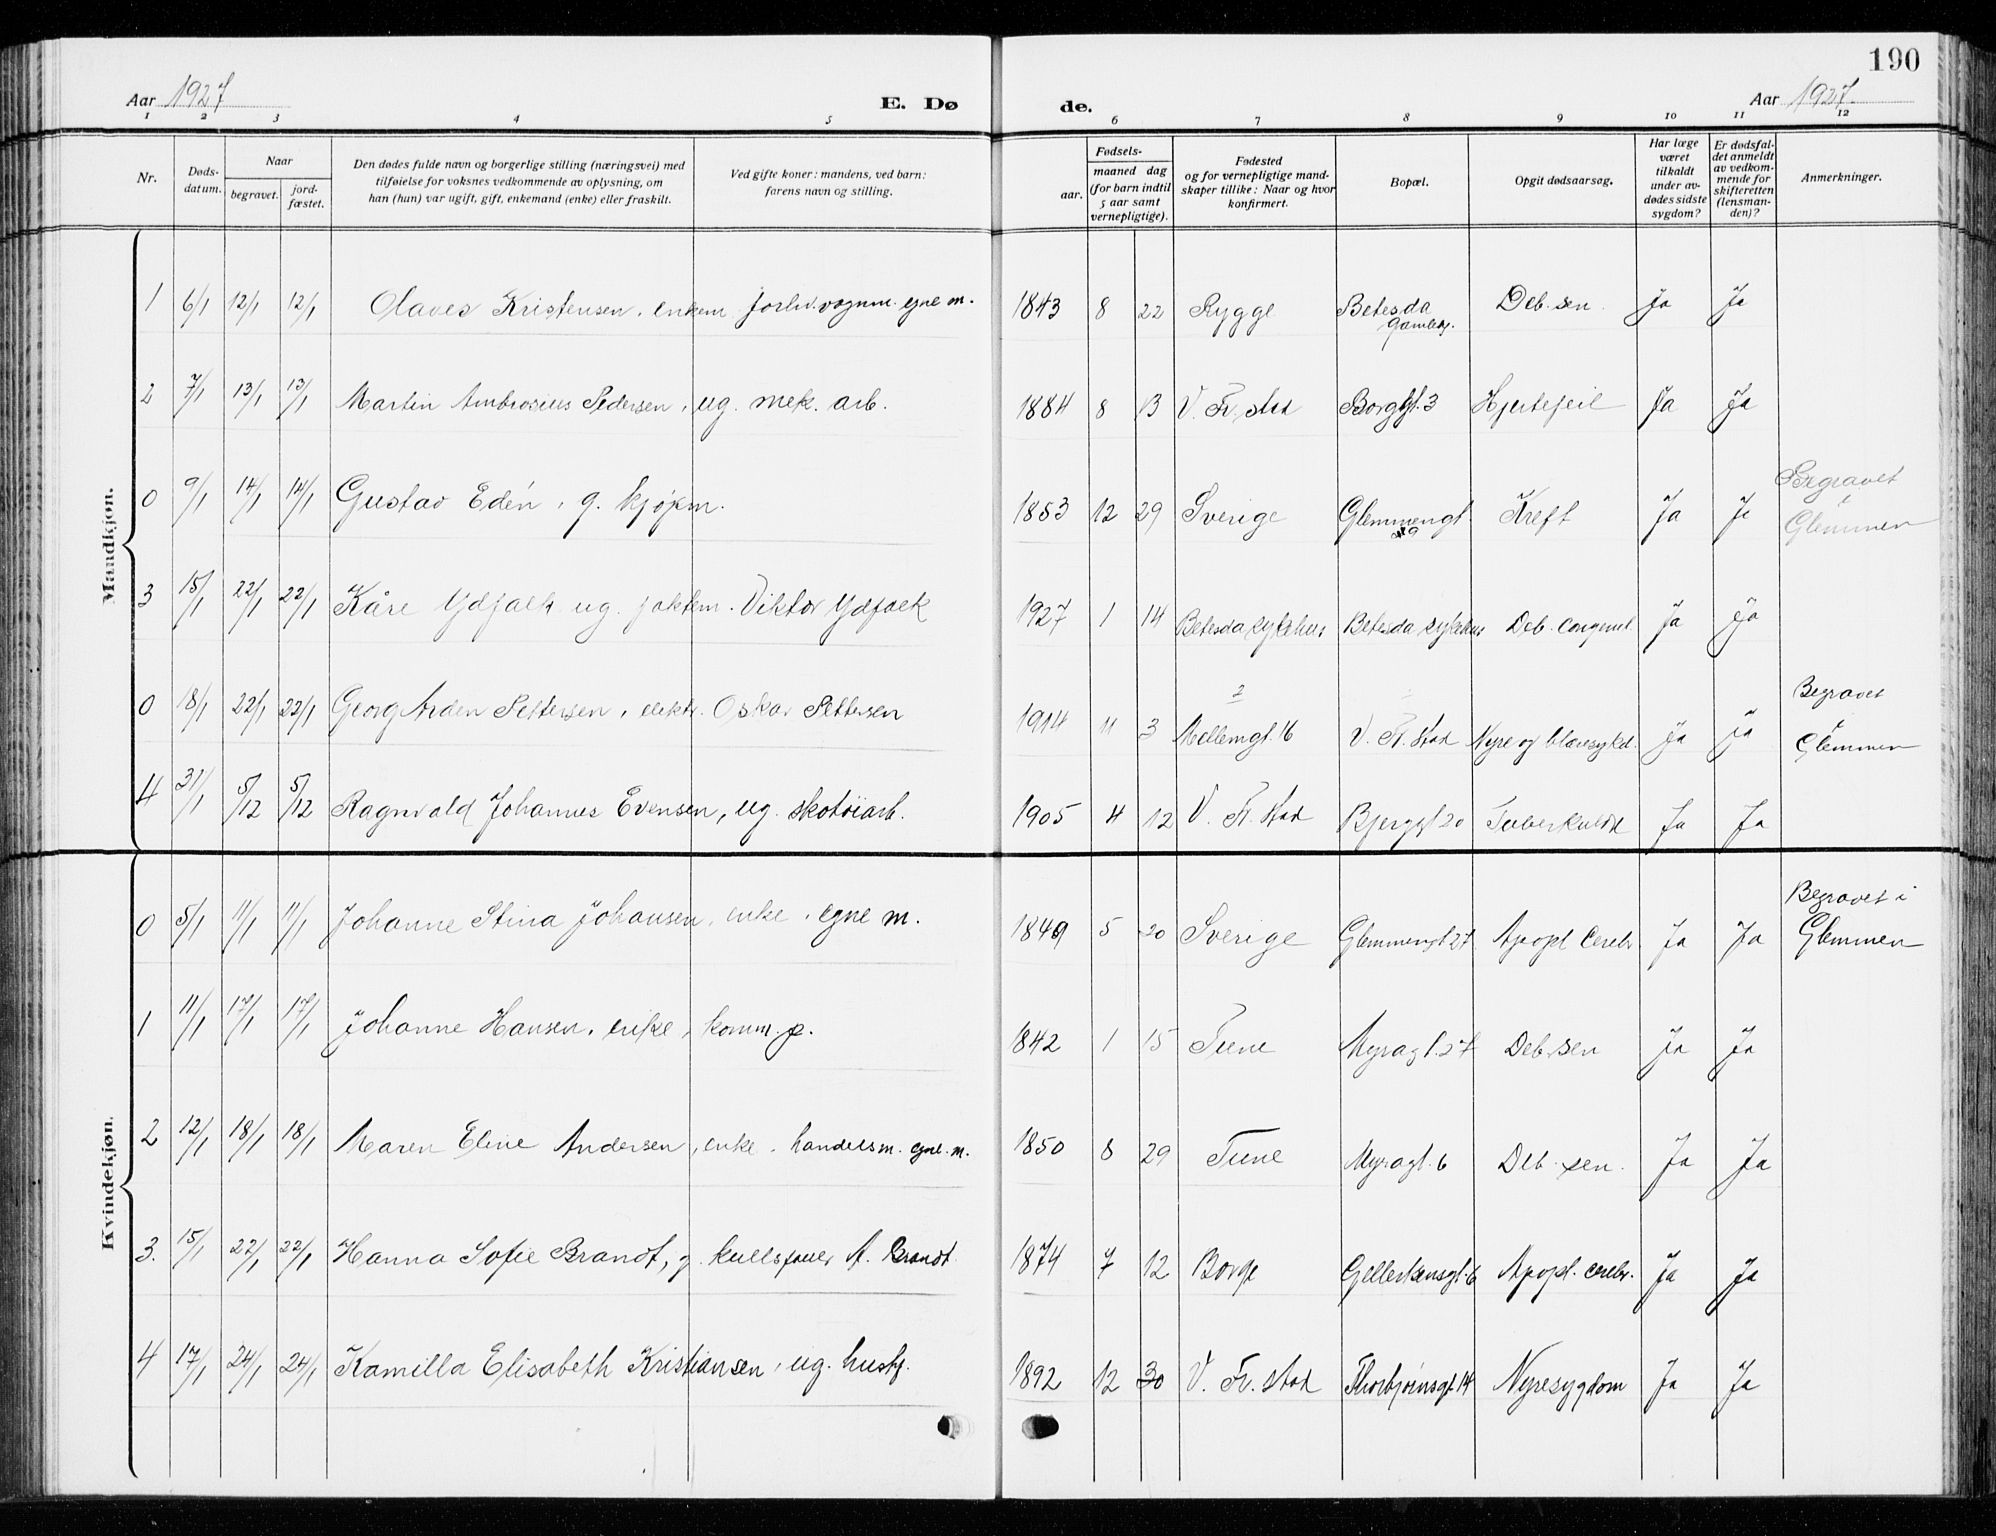 190
Aar 1927 E. Dø de. Aar 1927.
1 2 3 4 5 6 7 8 9 10 11 12
Nr.
Døds-
datum.
Naar
begravet.
jord-
fæstet.
Den dødes fulde navn og borgerlige stilling (næringsvei) med
tilføielse for voksnes vedkommende av oplysning, om
han (hun) var ugift, gift, enkemand (enke) eller fraskilt.
Ved gifte koner: mandens, ved barn:
farens navn og stilling.
Fødsels-
aar.
maaned dag
(for barn indtil
5 aar samt
vernepligtige).
Fødested
og for vernepligtige mand-
skaper tillike: Naar og hvor
konfirmert.
Bopæl.
Opgit dødsaarsag.
Har læge
været
tilkaldt
under av-
dødes sidste
sygdom?
Er dødsfal-
det anmeldt
av vedkom-
mende for
skifteretten
(lensman-
den)?
Anmerkninger.
Mandkjøn.
1 6/1 12/1 12/1 Olaves Kristensen, enkem forhv. vognm. egne m. 1843 8 22 Rygge Betesda Gamleh. Deb. sen. Ja Ja
2 7/1 13/1 13/1 Martin Ambrosius Pedersen, ug. mek. arb. 1884 8 13 V. Fr. stad Borggt. 3 Hjertefeil Ja Ja
0 9/1 14/1 14/1 Gustav Edén, g. kjøpm. 1853 12 29 Sverige Glemmengt. Kreft Ja Ja Begravet i Glemmen
3 15/1 22/1 22/1 Kåre Ydfalk ug. faktm. Viktor Ydfalk 1927 1 14 Betesda sykehus Betesda sykehus Deb. congenit Ja Ja
0 18/1 22/1 22/1 Georg Arden Pettersen, elektr. Oskar Pettersen 1914 11 3 Mellemgt. 16 V. Fr. stad Nyre og blæresykd. Ja Ja Begravet i Glemmen
4 31/1 5/12 5/12 Ragnvald Johannes Evensen, ug. skotøiarb. 1905 4 12 V. Fr. stad Bjerggt 20 Tuberkulose Ja Ja
Kvindekjøn.
0 5/1 11/1 11/1 Johanne Stina Johansen, enke, egne m. 1849 5 20 Sverige Glemmengt 27 Apopl. Cerebr. Ja Ja Begravet i Glemmen
1 11/1 17/1 17/1 Johanne Hansen, enke, komm. p. 1842 1 15 Tune Myragt. 27 Deb. sen Ja Ja
2 12/1 18/1 18/1 Maren Eline Andersen, enke, handelsm. egne. m. 1850 8 29 Tune Myragt. 6 Deb. sen. Ja Ja
3. 15/1 22/1 22/1 Hanna Sofie Brandt, g. A. Brandt 1874 7 12 Borge Gellertsensgt. 6 Apopl. cerebr. Ja Ja
4 17/1 24/1 24/1 Kamilla Elisabeth Kristiansen, ug. hush. 1892 12 30 V. Fr. stad Thorbjørnsgt 14 Nyresygdom Ja Ja